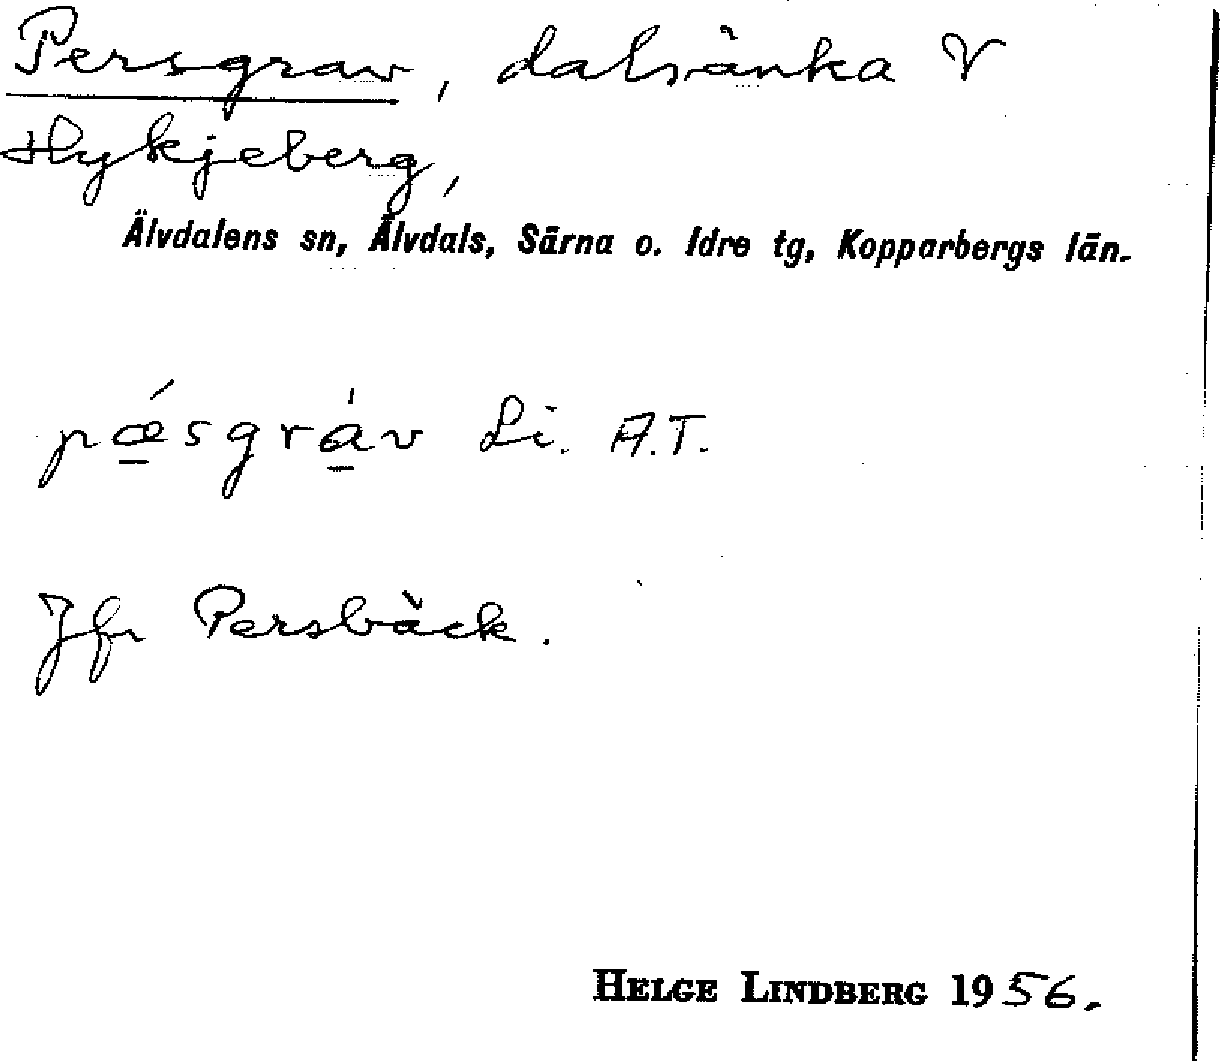 Persgrav, dalsänka V
Hykjeberg,
Älvdalens sn, Älvdals, Särna o. Idre tg, Kopparbergs län.
pǽ̱sgrà̱v Li. A.T.
Jfr Persbäck.
HELGE LINDBERG 1956.